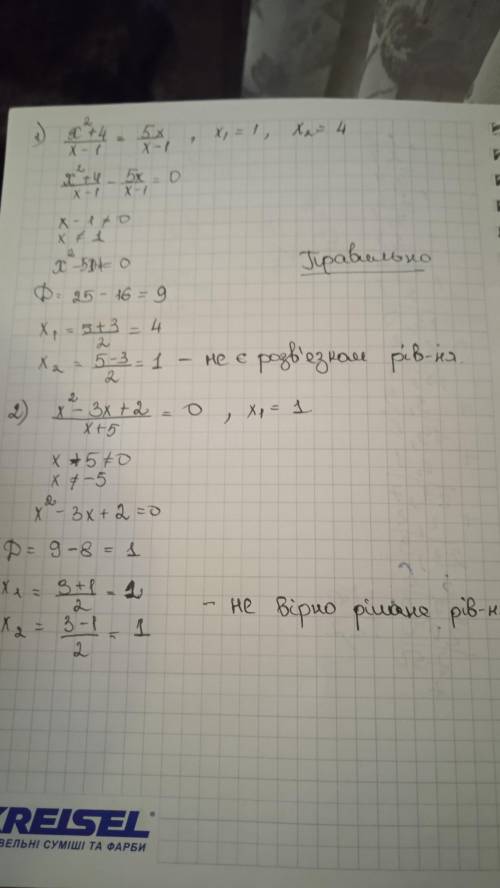 1) (x²+4)/(x-1) = 5x/(x-1) , x₁ = 1, x₂ = 4
(x²+4)/(x-1) - 5x/(x-1) = 0
x - 1 ≠ 0
x ≠ 1
= 0
Правильно
Д = 25 - 16 = 9
x₁ = (5+3)/2 = 4
x₂ = (5-3)/2 = 1 - не є розв'езком рів-ня
2) (x² - 3x + 2)/(x+5) = 0 , x₁ = 1
x + 5 ≠ 0
x ≠ -5
x² - 3x + 2 = 0
Д = 9 - 8 = 1
x₁ = (3+1)/2 = 2
- не вірно рів-н
x₂ = (3-1)/2 = 1
KREISEL®
ВЕЛЬНІ СУМІШІ ТА ФАРБИ